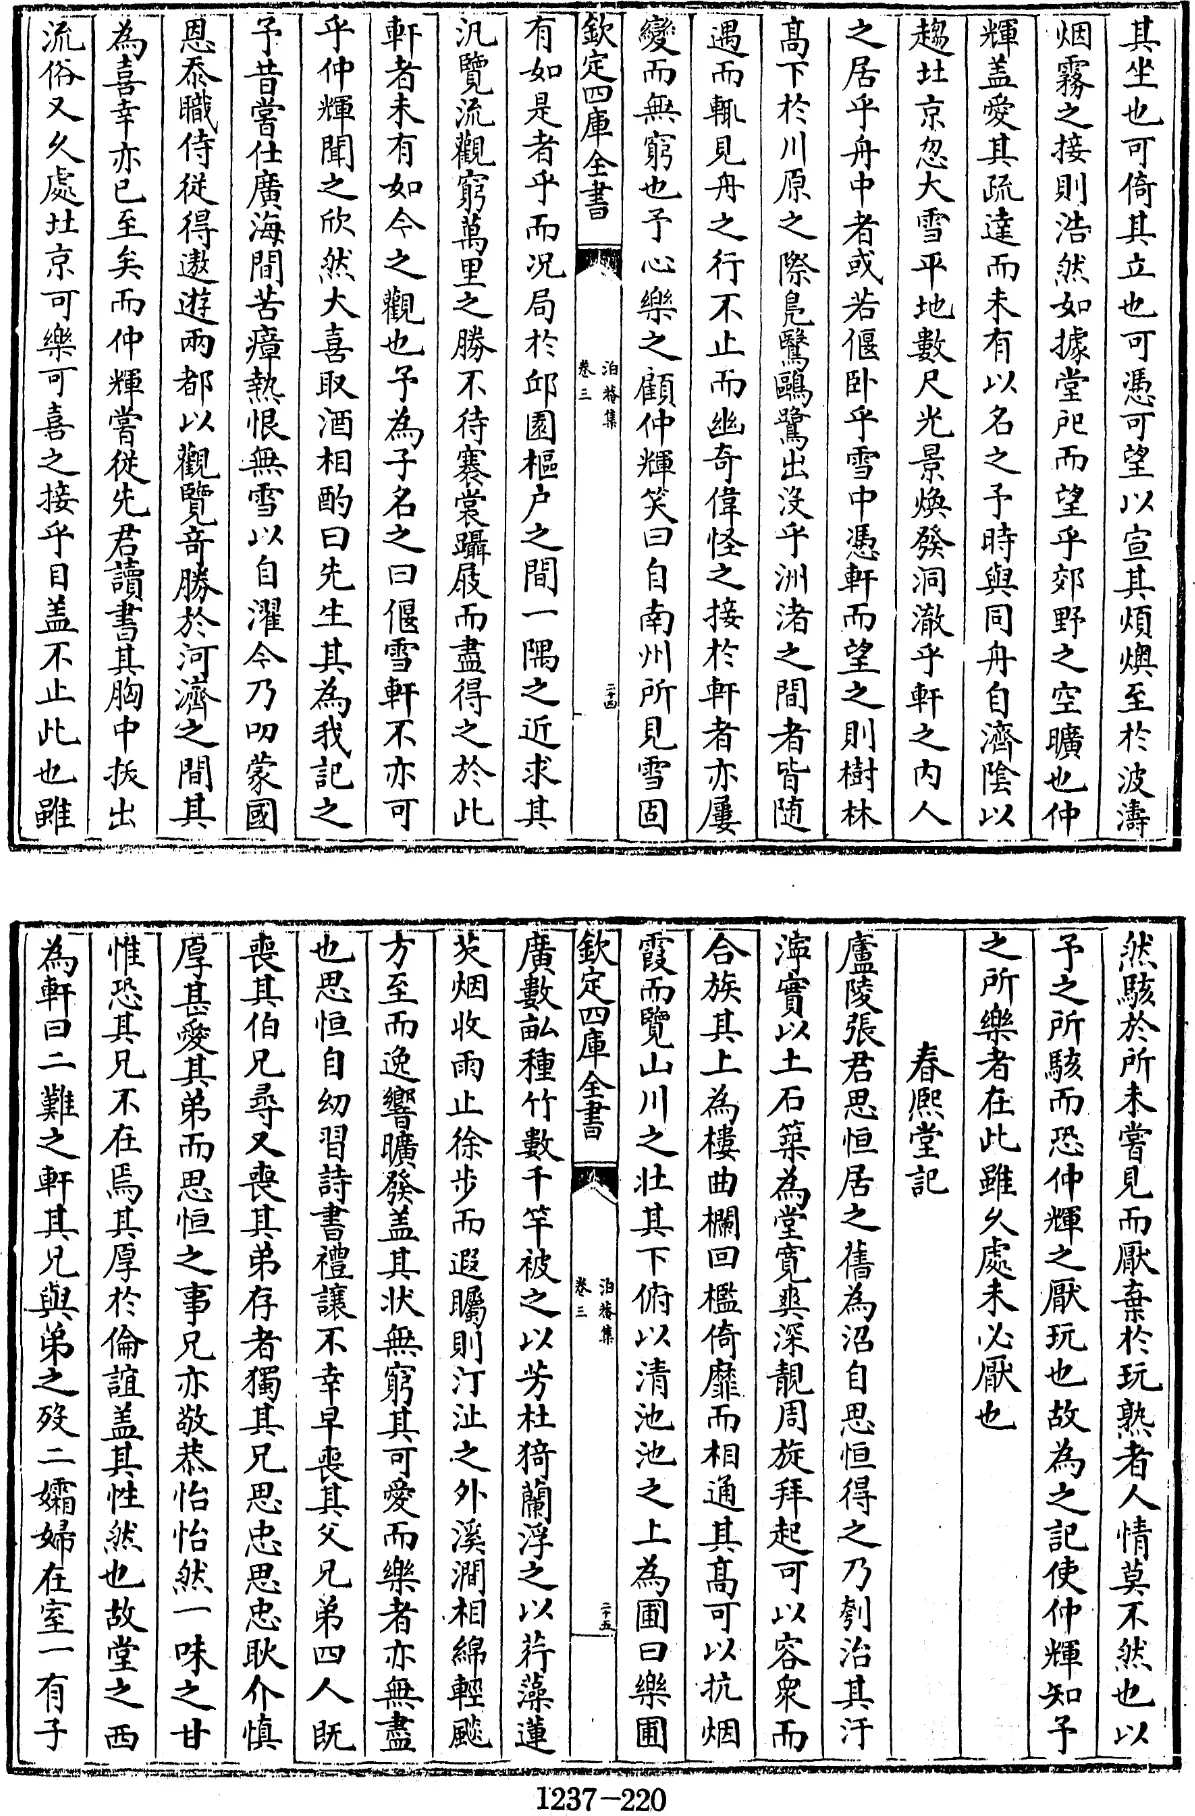 其坐也可倚其立也可憑可望以宣其煩燠至於波濤
烟霧之接則浩然如據堂戺而望乎郊野之空曠也仲
輝盖愛其疏達而未有以名之予時與同舟自濟隂以
趨北京忽大雪平地數尺光景煥發洞澈乎軒之内人
之居乎舟中者或若偃卧乎雪中憑軒而望之則樹林
髙下於川原之際鳬鷖鷗鷺出没乎洲渚之間者皆随
遇而輒見舟之行不止而幽奇偉怪之接於軒者亦屢
變而無窮也予心樂之顧仲輝笑曰自南州所見雪固
欽定四庫全書
泊菴集
卷三
二十四
有如是者乎而况局於邱園樞户之間一隅之近求其
汎覽流觀窮萬里之勝不待褰裳躡屐而盡得之於此
軒者未有如今之觀也予為子名之曰偃雪軒不亦可
乎仲輝聞之欣然大喜取酒相酌曰先生其為我記之
予昔嘗仕廣海間苦瘴熱恨無雪以自濯今乃叨蒙國
恩忝職侍從得遨遊兩都以觀覽竒勝於河濟之間其
為喜幸亦已至矣而仲輝嘗從先君讀書其胸中抜出
流俗又久處北京可樂可喜之接乎目盖不止此也雖
然駭於所未嘗見而厭棄於玩熟者人情莫不然也以
予之所駭而恐仲輝之厭玩也故為之記使仲輝知予
之所樂者在此雖久處未必厭也
春熈堂記
廬陵張君思恒居之舊為沼自思恒得之乃刳治其汙
濘實以土石築為堂寛爽深靚周旋拜起可以容衆而
合族其上為樓曲欄回檻倚靡而相通其髙可以抗烟
霞而覽山川之壮其下俯以清池池之上為圃曰樂圃
欽定四庫全書
泊菴集
卷三
二十五
廣數畝種竹數千竿被之以芳杜猗蘭浮之以荇藻蓮
芡烟收雨止徐步而遐矚則汀沚之外溪澗相綿輕颸
方至而逸響曠發盖其状無窮其可愛而樂者亦無盡
也思恒自幼習詩書禮讓不幸早喪其父兄弟四人既
喪其伯兄尋又喪其弟存者獨其兄思忠思忠耿介慎
厚甚愛其弟而思恒之事兄亦敬恭怡怡然一味之甘
惟恐其兄不在焉其厚於倫誼盖其性然也故堂之西
為軒曰二難之軒其兄與弟之歿二孀婦在室一有子
1237-220